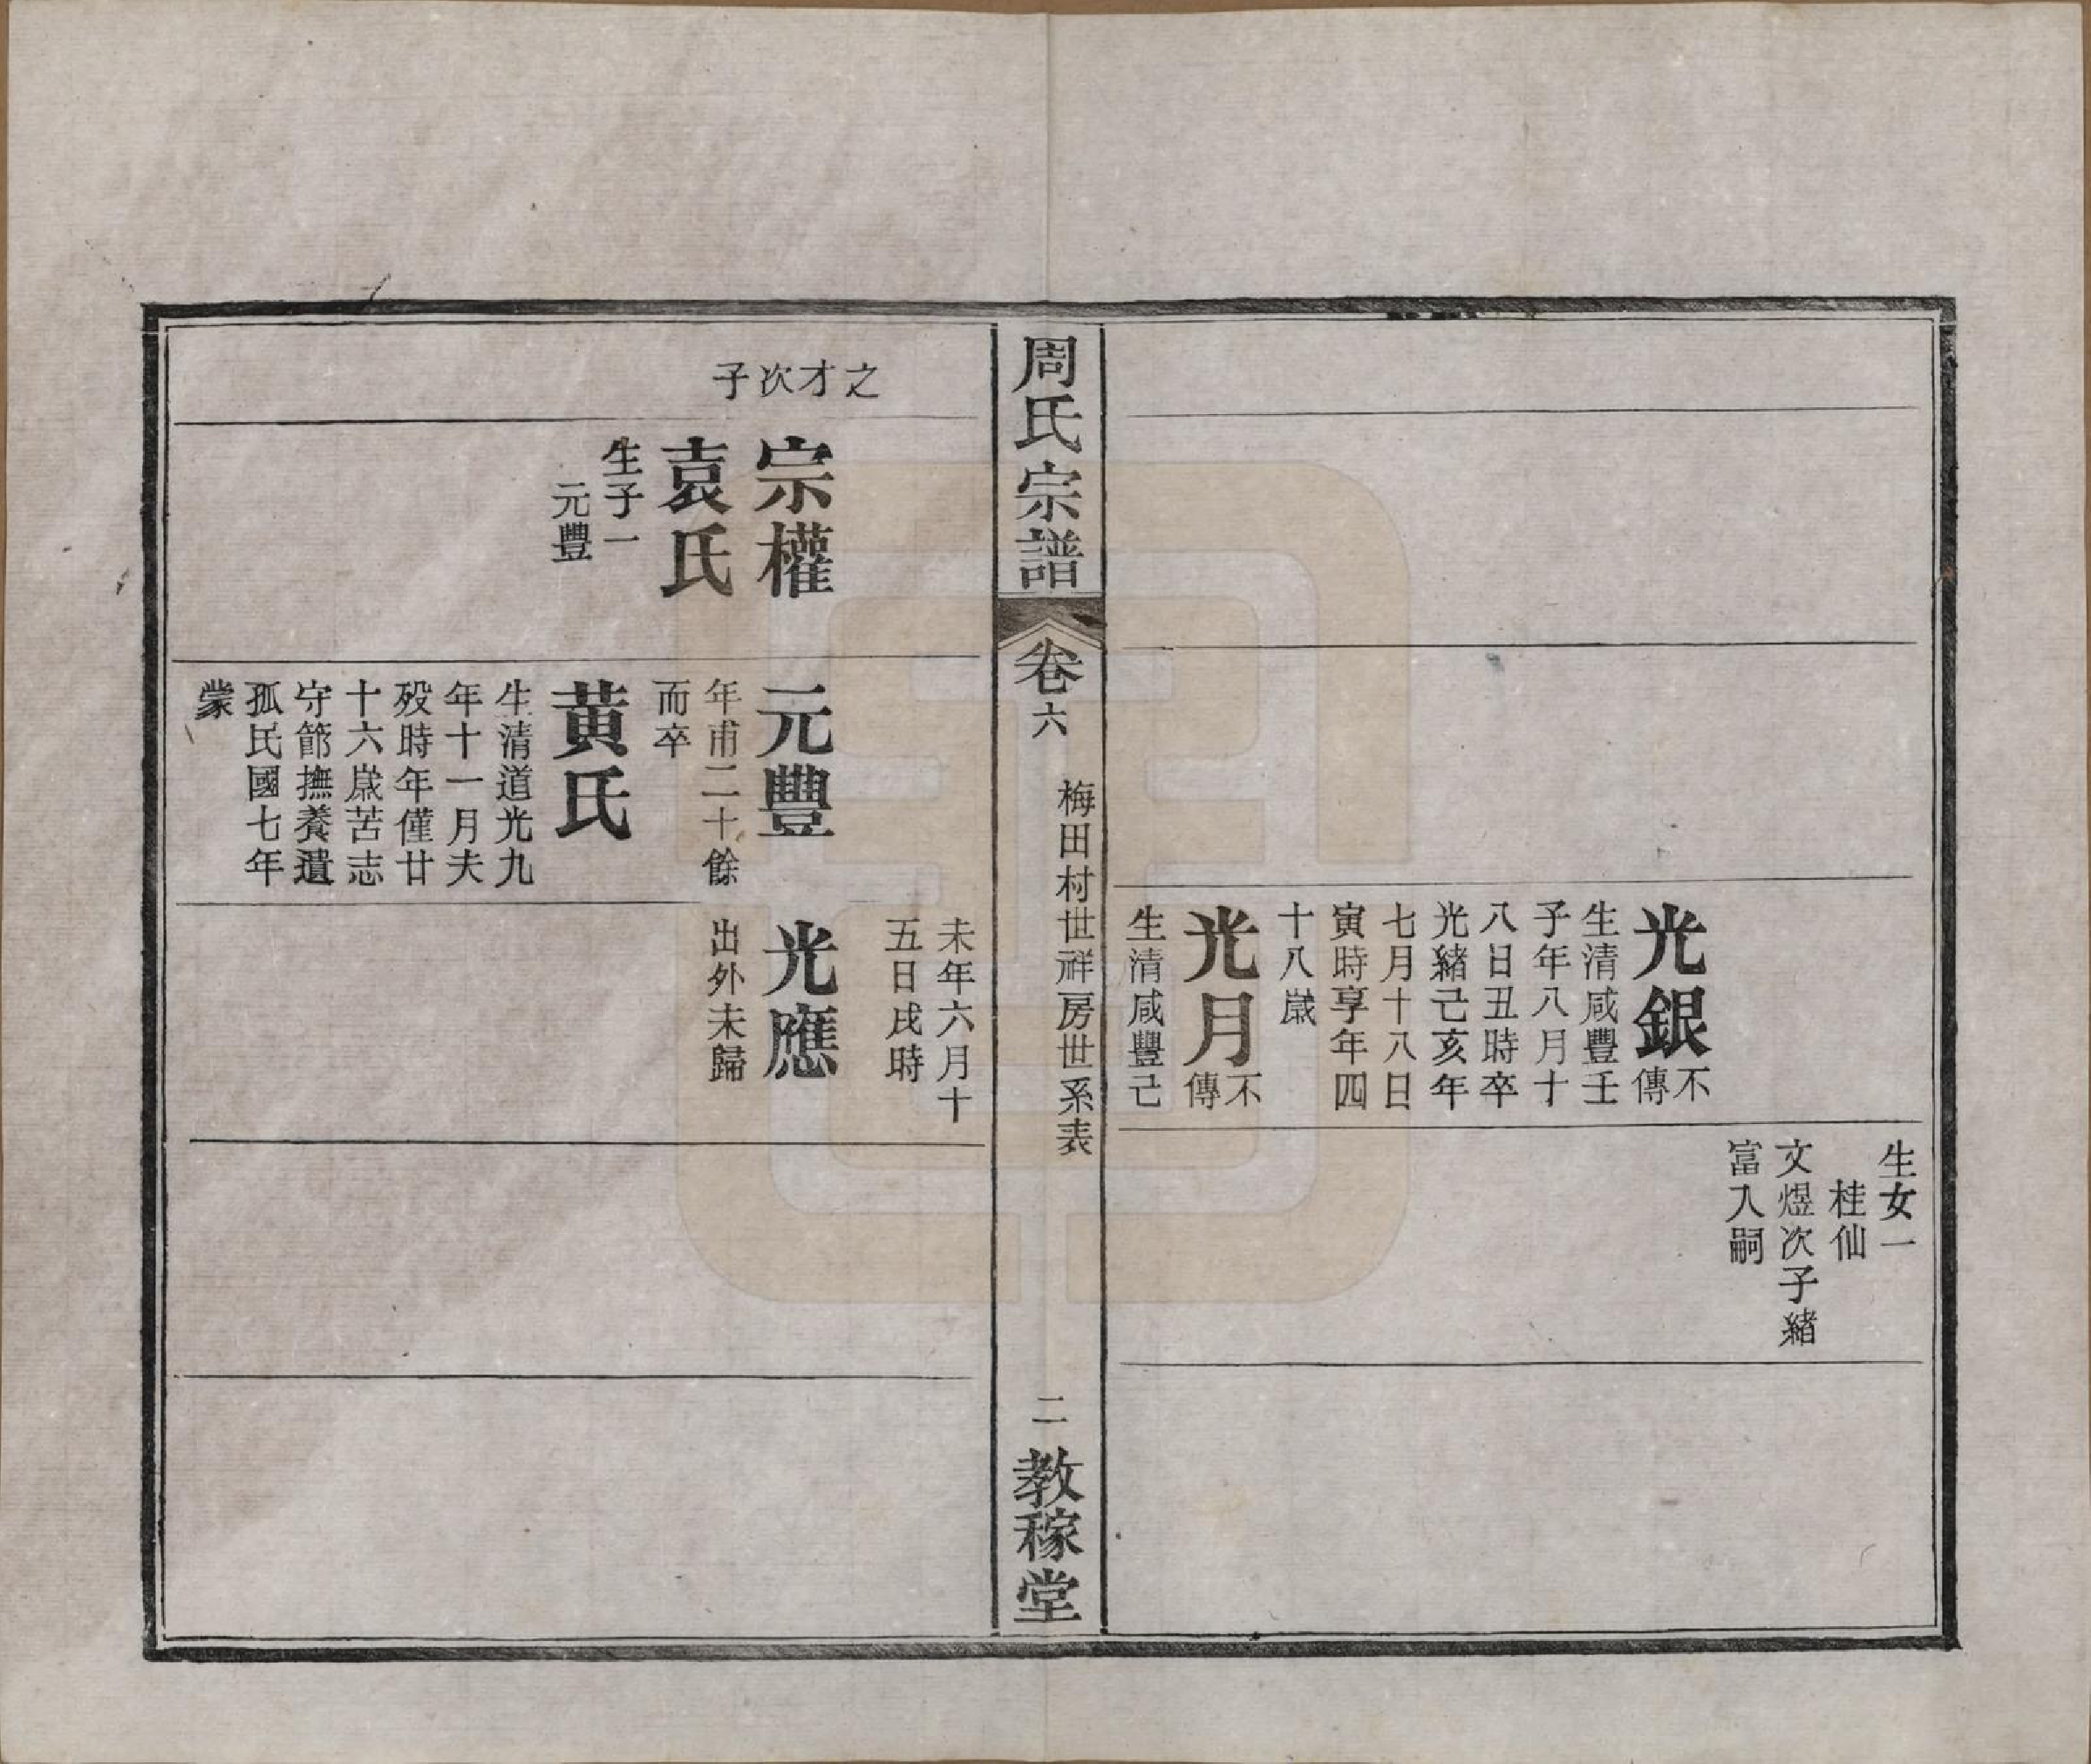 光銀不傳
生清咸豐壬
子年八月十
八日丑時卒
光緒己亥年
七月十八日
寅時享年四
十八歲
光月不傳
生清咸豐己
生女一
桂仙
文煜次子緒
富入嗣
周氏宗譜
卷六
梅田村世祥房世系表
二
教稼堂
之才次子
宗權
袁氏
生子一
元豐
元豐
年甫二十餘
而卒
黃氏
生清道光九
年十一月夫
歿時年僅廿
十六歲苦志
守節撫養遺
孤民國七年
蒙
未年六月十
五日戌時
光應
出外未歸